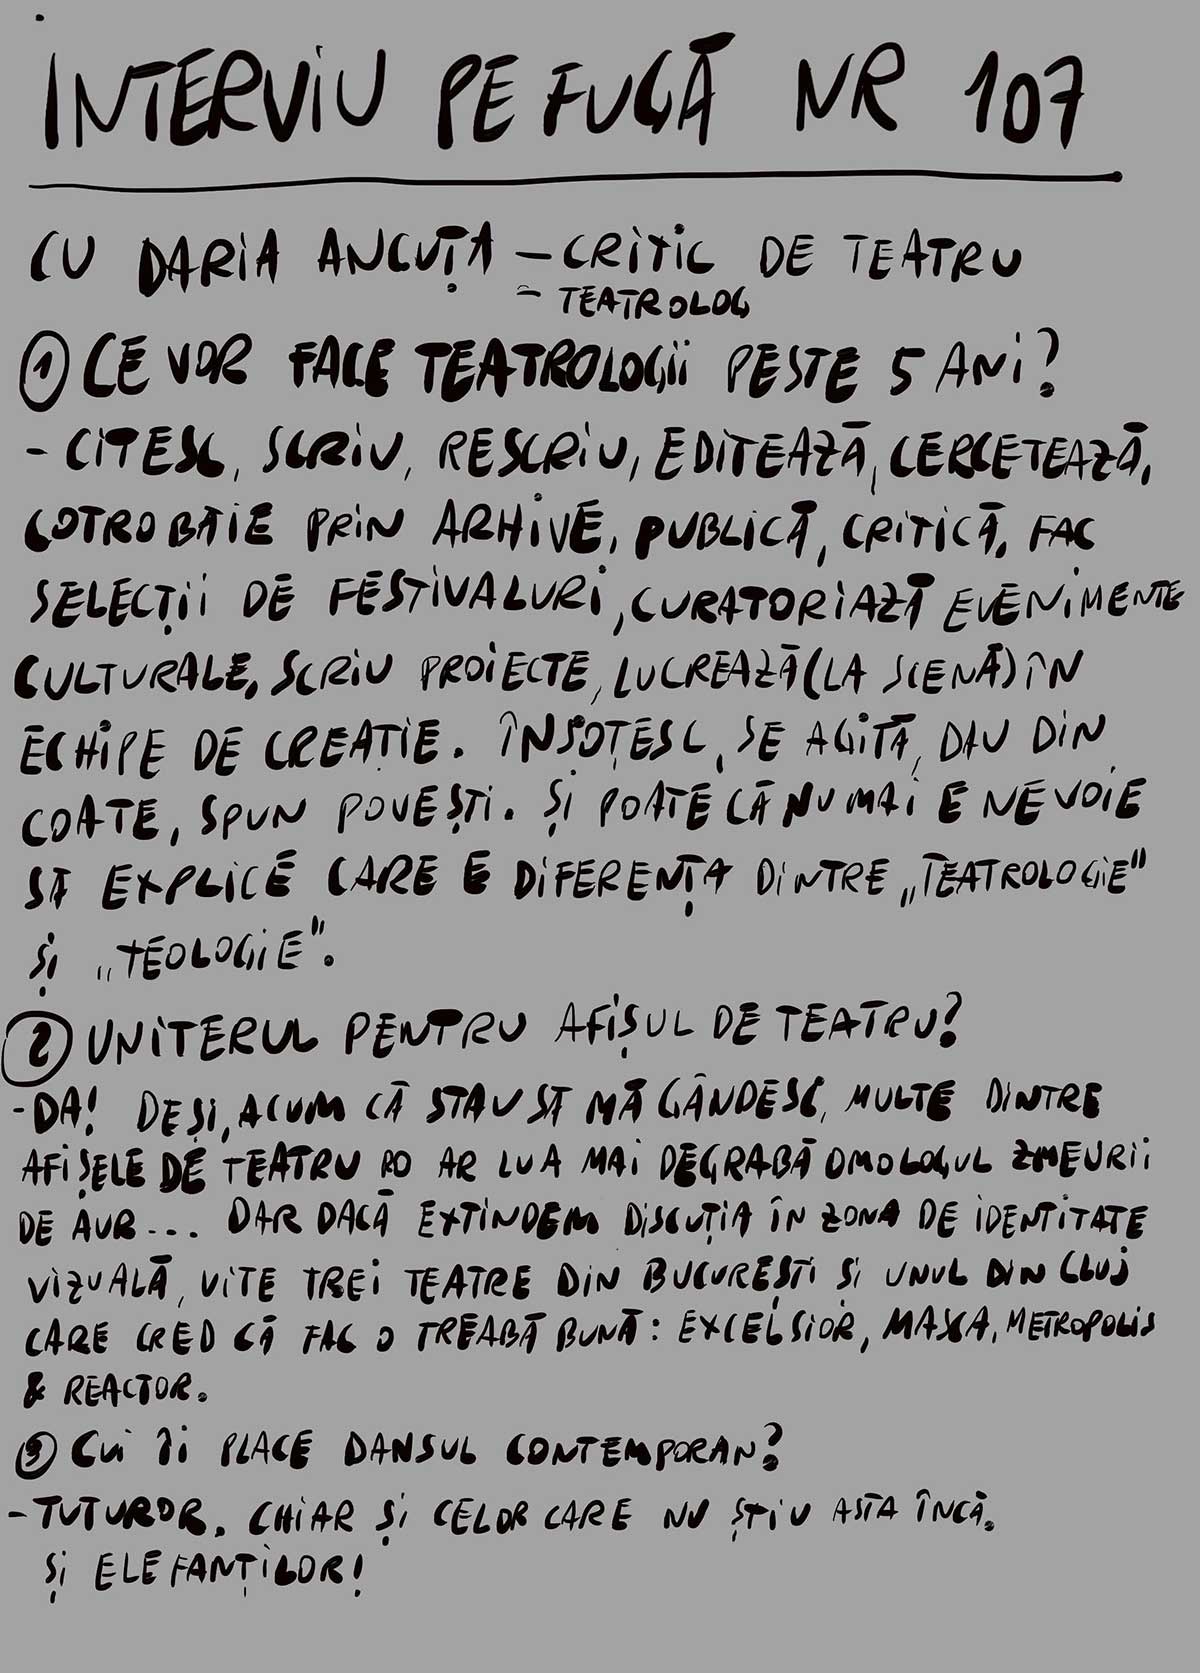 INTERVIU PE FUGĂ NR 107
CU DARIA ANCUȚA – CRITIC DE TEATRU
– TEATROLOG
① CE VOR FACE TEATROLOGII PESTE 5 ANI?
- CITESC, SCRIU, RESCRIU, EDITEAZĂ, CERCETEAZĂ,
COTROBĂIE PRIN ARHIVE, PUBLICĂ, CRITICĂ, FAC
SELECȚII DE FESTIVALURI, CURATORIAZĂ EVENIMENTE
CULTURALE, SCRIU PROIECTE, LUCREAZĂ (LA SCENĂ) ÎN
ECHIPE DE CREAȚIE. ÎNSOȚESC, SE AGITĂ, DAU DIN
COATE, SPUN POVEȘTI. ȘI POATE CĂ NU MAI E NEVOIE
SĂ EXPLICE CARE E DIFERENȚA DINTRE „TEATROLOGIE”
ȘI „TEOLOGIE”.
② UNITERUL PENTRU AFIȘUL DE TEATRU?
- DA! DEȘI, ACUM CĂ STAU SĂ MĂ GÂNDESC, MULTE DINTRE
AFIȘELE DE TEATRU RO AR LUA MAI DEGRABĂ OMOLOGUL ZMEURII
DE AUR... DAR DACĂ EXTINDEM DISCUȚIA ÎN ZONA DE IDENTITATE
VIZUALĂ, UITE TREI TEATRE DIN BUCUREȘTI ȘI UNUL DIN CLUJ
CARE CRED CĂ FAC O TREABĂ BUNĂ: EXCELSIOR, MASCA, METROPOLIS
& REACTOR.
③ CUI ÎI PLACE DANSUL CONTEMPORAN?
- TUTUROR. CHIAR ȘI CELOR CARE NU ȘTIU ASTA ÎNCĂ.
ȘI ELEFANȚILOR!